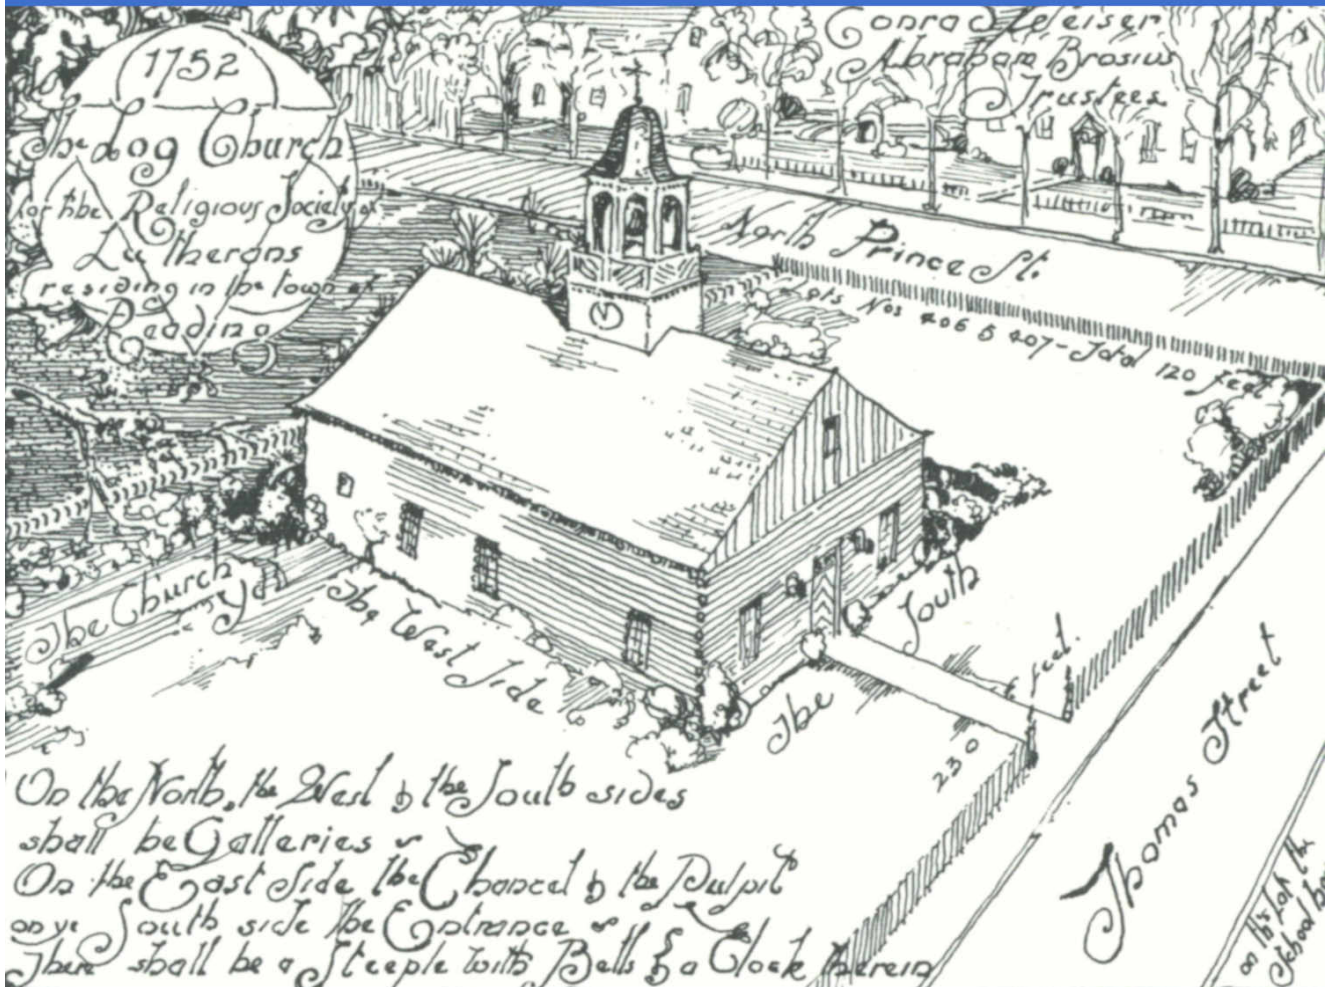 1752
The Log Church
for the Religious Society of
Lutherans
residing in the town of
Reading
Conrad Weiser
Abraham Brosius
Trustees
North Prince St.
Lots Nos 406 & 407 - Total 120 feet
The Church
Yd
The West Side
The South
230 feet
Thomas Street
On the North, the West & the South sides
shall be Galleries &
On the East Side the Chancel & the Pulpit
on ye South side the Entrance &
There shall be a Steeple with Bells & a Clock therein
on this Lot the
School